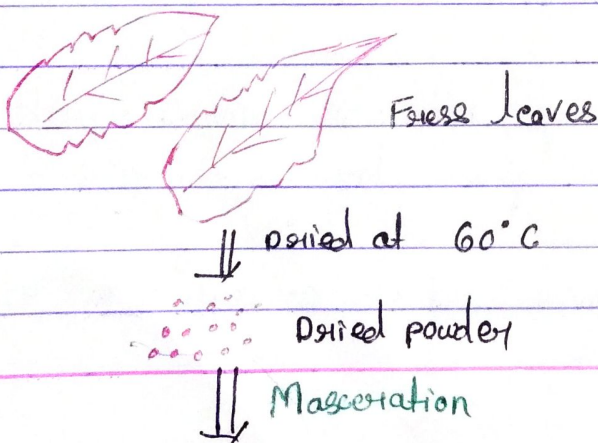 Fress leaves
Dried at 60°C
Dried powder
Masceration